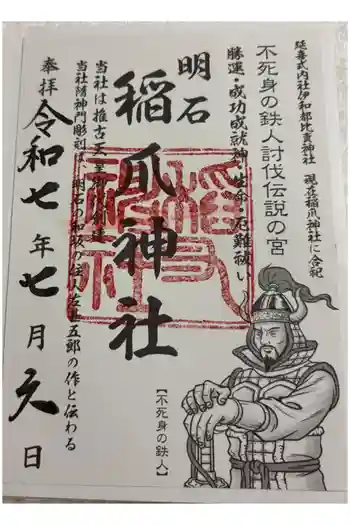 延喜式内社伊和都比売神社 現在稲爪神社に合祀
不死身の鉄人討伐伝説の宮
勝運・成功成就神 生命・厄難祓い
明石
稲爪神社
当社は推古天皇
当社随神門彫刻は、明石の和坂の住人佐五郎の作と伝わる
奉拝
令和七年七月六日
【不死身の鉄人】